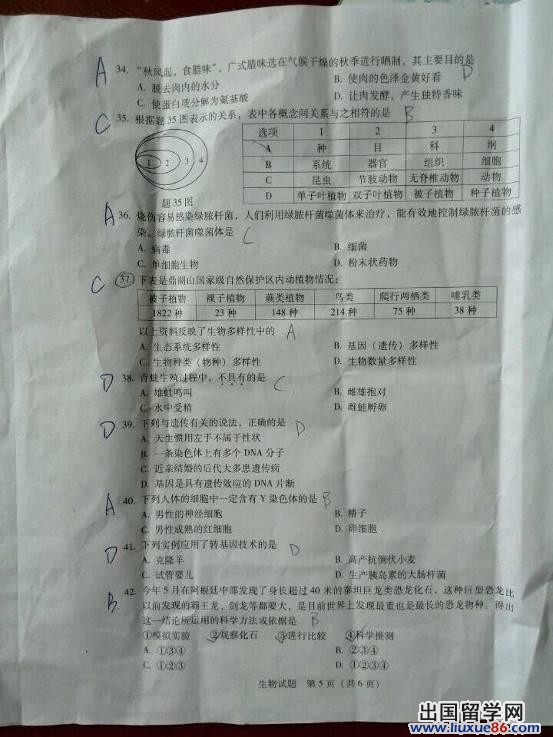 A 34. “秋风起，食腊味”，广式腊味选在气候干燥的秋季进行晒制，其主要目的是 D
A. 脱去肉内的水分 B. 使肉的色泽金黄好看
C. 使蛋白质分解为氨基酸 D. 让肉发酵，产生独特香味
C 35. 根据题 35 图表示的关系，表中各概念间关系与之相符的是 B
1 2 3 4
题 35 图
选项 1 2 3 4
A 种 目 科 纲
B 系统 器官 组织 细胞
C 昆虫 节肢动物 无脊椎动物 动物
D 单子叶植物 双子叶植物 被子植物 种子植物
A 36. 烧伤容易感染绿脓杆菌，人们利用绿脓杆菌噬菌体来治疗，能有效地控制绿脓杆菌的感
染。绿脓杆菌噬菌体是 C
A. 病毒 B. 细菌
C. 单细胞生物 D. 粉末状药物
C 37. 下表是鼎湖山国家级自然保护区内动植物情况：
被子植物 裸子植物 蕨类植物 鸟类 爬行两栖类 哺乳类
1822 种 23 种 148 种 214 种 75 种 38 种
以上资料反映了生物多样性中的 A
A. 生态系统多样性 B. 基因（遗传）多样性
C. 生物种类（物种）多样性 D. 生物数量多样性
D 38. 青蛙生殖过程中，不具有的是 C
A. 雄蛙鸣叫 B. 雌雄抱对
C. 水中受精 D. 雌蛙孵卵
D 39. 下列与遗传有关的说法，正确的是 D
A. 天生惯用左手不属于性状
B. 一条染色体上有多个 DNA 分子
C. 近亲结婚的后代大多患遗传病
D. 基因是具有遗传效应的 DNA 片断
A 40. 下列人体的细胞中一定含有 Y 染色体的是 B
A. 男性的神经细胞 B. 精子
C. 男性成熟的红细胞 D. 卵细胞
D 41. 下列实例应用了转基因技术的是 D
A. 克隆羊 B. 高产抗倒伏小麦
C. 试管婴儿 D. 生产胰岛素的大肠杆菌
B 42. 今年 5 月在阿根廷中部发现了身长超过 40 米的泰坦巨龙类恐龙化石，这种巨型恐龙比
以前发现的霸王龙，剑龙等都要大，是目前世界上发现最重也是最长的恐龙物种。得出
这一结论所运用的科学方法或依据是 B
①模拟实验 ②观察化石 ③进行比较 ④科学推测
A. ①③④ B. ②③④
C. ①②③ D. ①②④
生物试题 第 5 页（共 6 页）
出国留学网
www.liuxue86.com